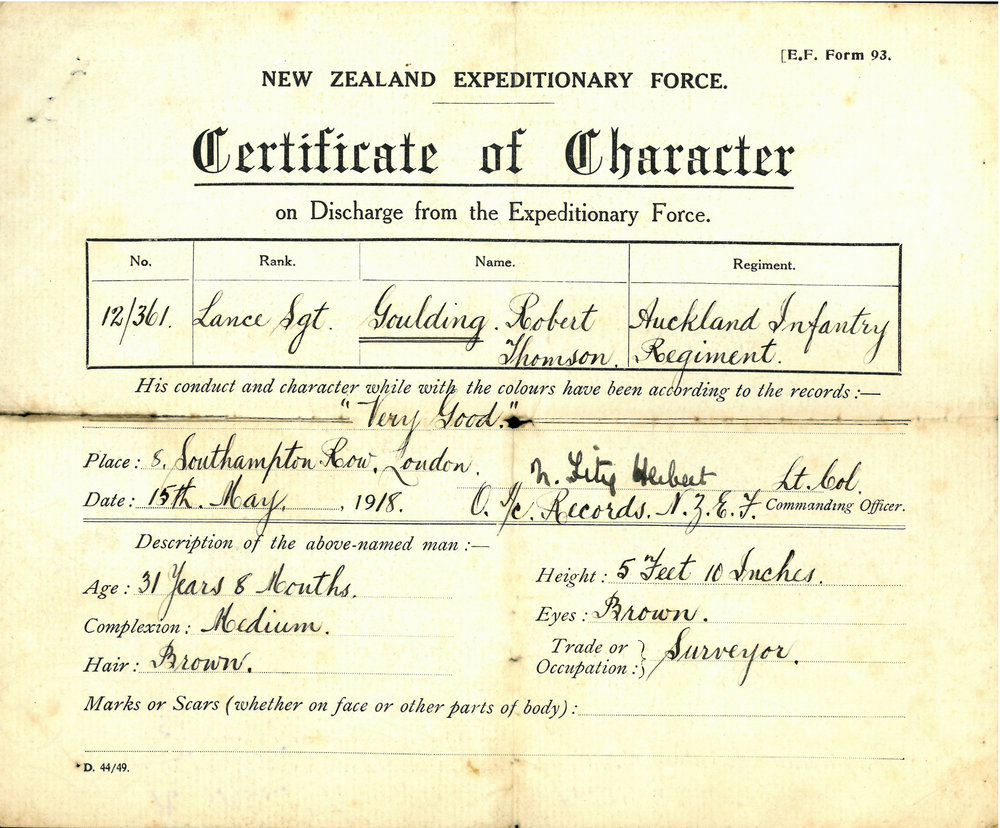 [E.F. Form 93.
NEW ZEALAND EXPEDITIONARY FORCE.
Certificate of Character
on Discharge from the Expeditionary Force.
No. Rank. Name. Regiment.
12/361. Lance Sgt. Goulding. Robert Auckland Infantry
Thomson. Regiment.
His conduct and character while with the colours have been according to the records:—
"Very Good."
Place: 8, Southampton Row, London. Herbert Lt. Col.
Date: 15th. May. , 1918. O. I/c. Records. N.Z.E.F. Commanding Officer.
Description of the above-named man:—
Age: 31 Years 8 Months. Height: 5 Feet 10 Inches.
Complexion: Medium. Eyes: Brown.
Hair: Brown. Trade or Occupation: Surveyor.
Marks or Scars (whether on face or other parts of body):
D. 44/49.